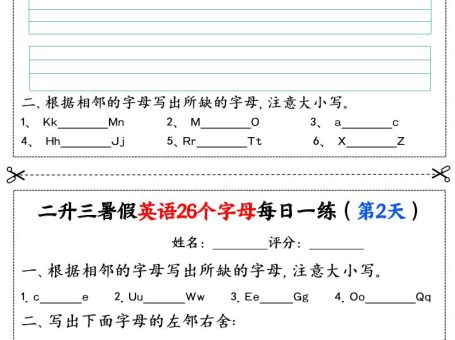 二、根据相邻的字母写出所缺的字母, 注意大小写。
1、 Kk______Mn 2、 M______O 3、 a______c
4、 Hh______Jj 5、Rr______Tt 6、 X______Z
二升三暑假英语26个字母每日一练（第2天）
姓名：________评分：________
一、根据相邻的字母写出所缺的字母, 注意大小写。
1. c______e 2. Uu______Ww 3. Ee_____Gg 4. Oo______Qq
二、写出下面字母的左邻右舍：